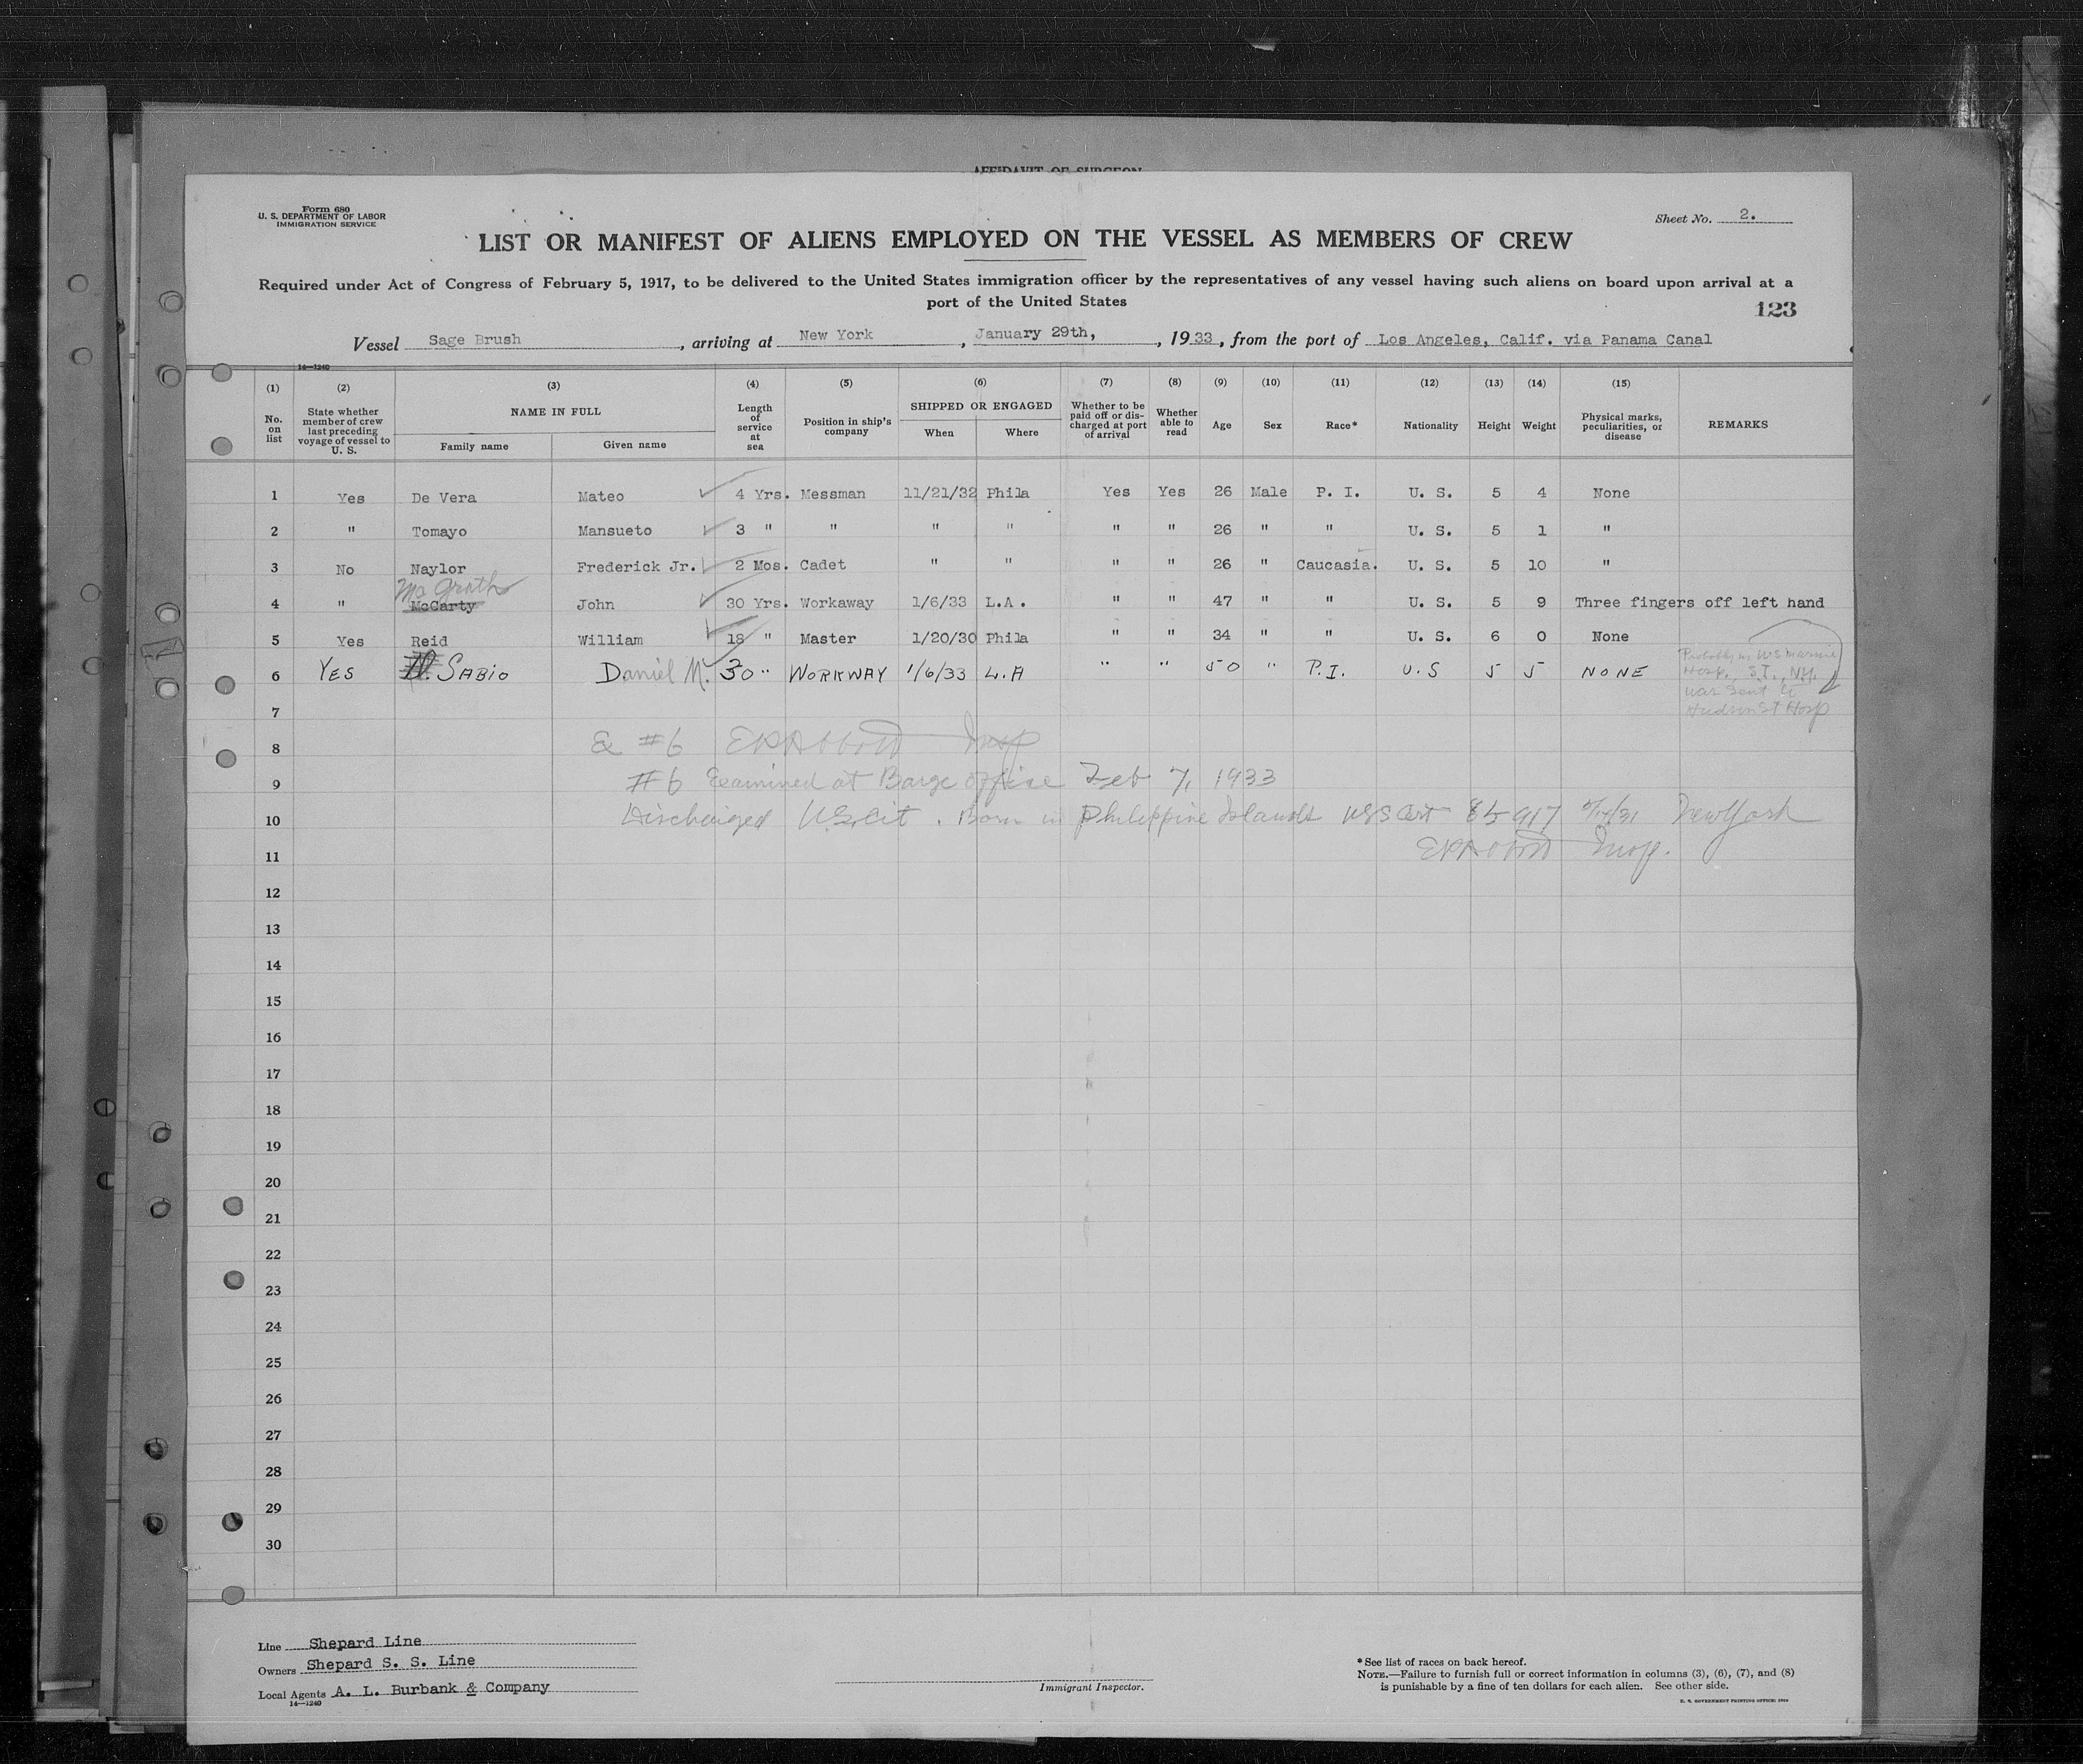 AFFIDAVIT OF SURGEON
Form 680
U. S. DEPARTMENT OF LABOR
IMMIGRATION SERVICE
Sheet No. 2.
LIST OR MANIFEST OF ALIENS EMPLOYED ON THE VESSEL AS MEMBERS OF CREW
Required under Act of Congress of February 5, 1917, to be delivered to the United States immigration officer by the representatives of any vessel having such aliens on board upon arrival at a
port of the United States
123
Vessel Sage Brush, arriving at New York, January 29th, , 1933, from the port of Los Angeles, Calif. via Panama Canal
14—1240
(1) (2) (3) (4) (5) (6) (7) (8) (9) (10) (11) (12) (13) (14) (15)
No. on list State whether member of crew last preceding voyage of vessel to U. S. NAME IN FULL Family name Given name Length of service at sea Position in ship's company SHIPPED OR ENGAGED When Where Whether to be paid off or discharged at port of arrival Whether able to read Age Sex Race* Nationality Height Weight Physical marks, peculiarities, or disease REMARKS
1 Yes De Vera Mateo 4 Yrs. Messman 11/21/32 Phila Yes Yes 26 Male P. I. U. S. 5 4 None
2 " Tomayo Mansueto 3 " " " " " " 26 " " U. S. 5 1 "
3 No Naylor Frederick Jr. 2 Mos. Cadet " " " " 26 " Caucasia. U. S. 5 10 "
Mc Grath
4 " McCarty John 30 Yrs. Workaway 1/6/33 L.A. " " 47 " " U. S. 5 9 Three fingers off left hand
5 Yes Reid William 18 " Master 1/20/30 Phila " " 34 " " U. S. 6 0 None
6 YES SABIO Daniel M. 30 " WORKWAY 1/6/33 L.A " " 50 " P.I. U.S 5 5 NONE
Probably in US Marine
Hosp., S.I., N.Y.
was sent to
Hudson St Hosp
7
8 & #6 Insp
9 #6 Examined at Barge office Feb 7, 1933
10 Discharged U.S. cit. Born in Philippine Islands Cert New York
11 Insp.
12
13
14
15
16
17
18
19
20
21
22
23
24
25
26
27
28
29
30
Line Shepard Line
Owners Shepard S. S. Line
Local Agents A. L. Burbank & Company
14—1240
Immigrant Inspector.
*See list of races on back hereof.
NOTE.—Failure to furnish full or correct information in columns (3), (6), (7), and (8)
is punishable by a fine of ten dollars for each alien. See other side.